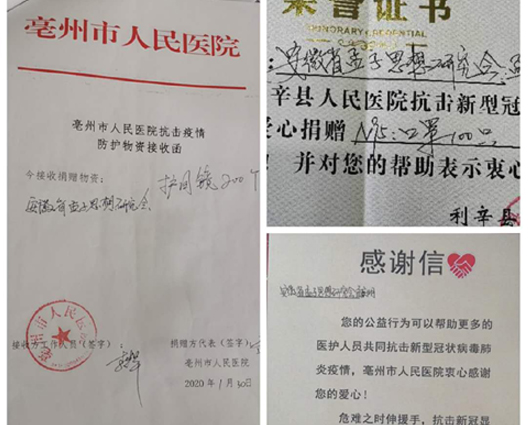 亳州市人民医院
亳州市人民医院抗击疫情
防护物资接收函
今接收捐赠物资:
护目镜200个
安徽省孟子思想研究会
亳州市人民医
接收方工作人员(签字):
捐赠方代表(签字):
亳州市人民医院
2020年1月30日
荣誉证书
HONORARY CREDENTIAL
:安徽省孟子思想研究会
辛县人民医院抗击新型冠
爱心捐赠 N95口罩100只
!并对您的帮助表示衷心
利辛县
感谢信
安徽省孟子思想研究会
您的公益行为可以帮助更多的
医护人员共同抗击新型冠状病毒肺
炎疫情,亳州市人民医院衷心感谢
您的爱心!
危难之时伸援手,抗击新冠显